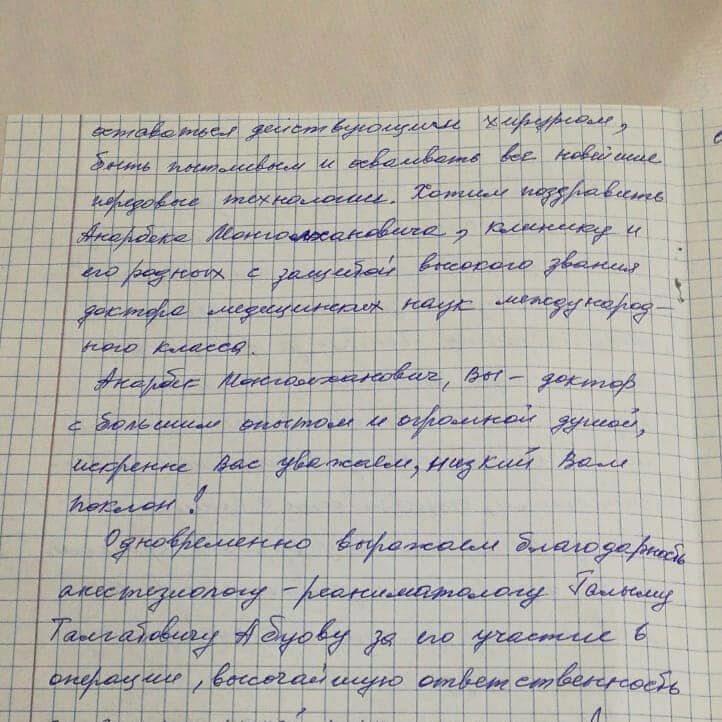 оставаться действующим хирургом,
быть пытливым и осваивать все новейшие
передовые технологии. Хотим поздравить
Анарбека Монголхановича, клинику и
его родных с защитой высокого звания
доктора медицинских наук международ-
ного класса.
Анарбек Монголханович, Вы - доктор
с большим опытом и огромной душой,
искренне Вас уважаем, низкий Вам
поклон!
Одновременно выражаем благодарность
анестезиологу-реаниматологу Галыму
Талгатовичу Абуову за его участие в
операции, высочайшую ответственность